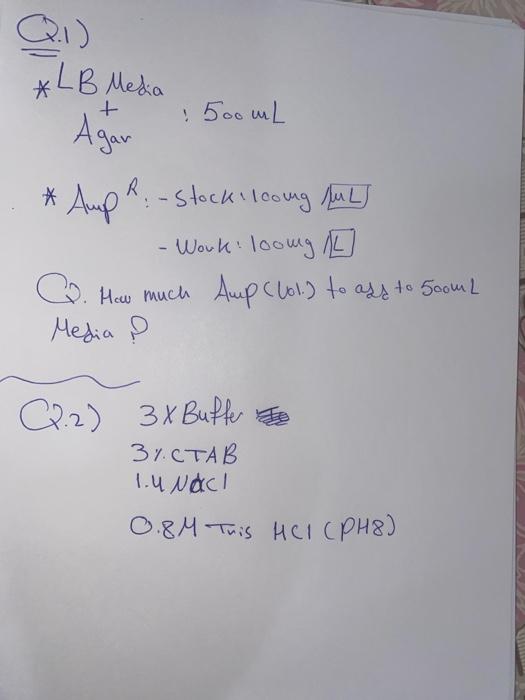 Q.1)
* LB Media
+
Agar : 500 mL
* Amp R: - Stock: 100mg /mL
- Work: 100mg /L
Q. How much Amp (Vol.) to add to 500mL
Media ?
Q.2) 3X Buffer
3%. CTAB
1.4 NaCl
0.8M Tris HCl (PH8)